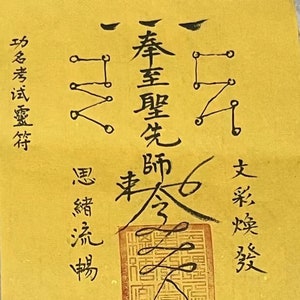 功名考试靈符
奉至聖先師
令
文彩煥發
思緒流暢